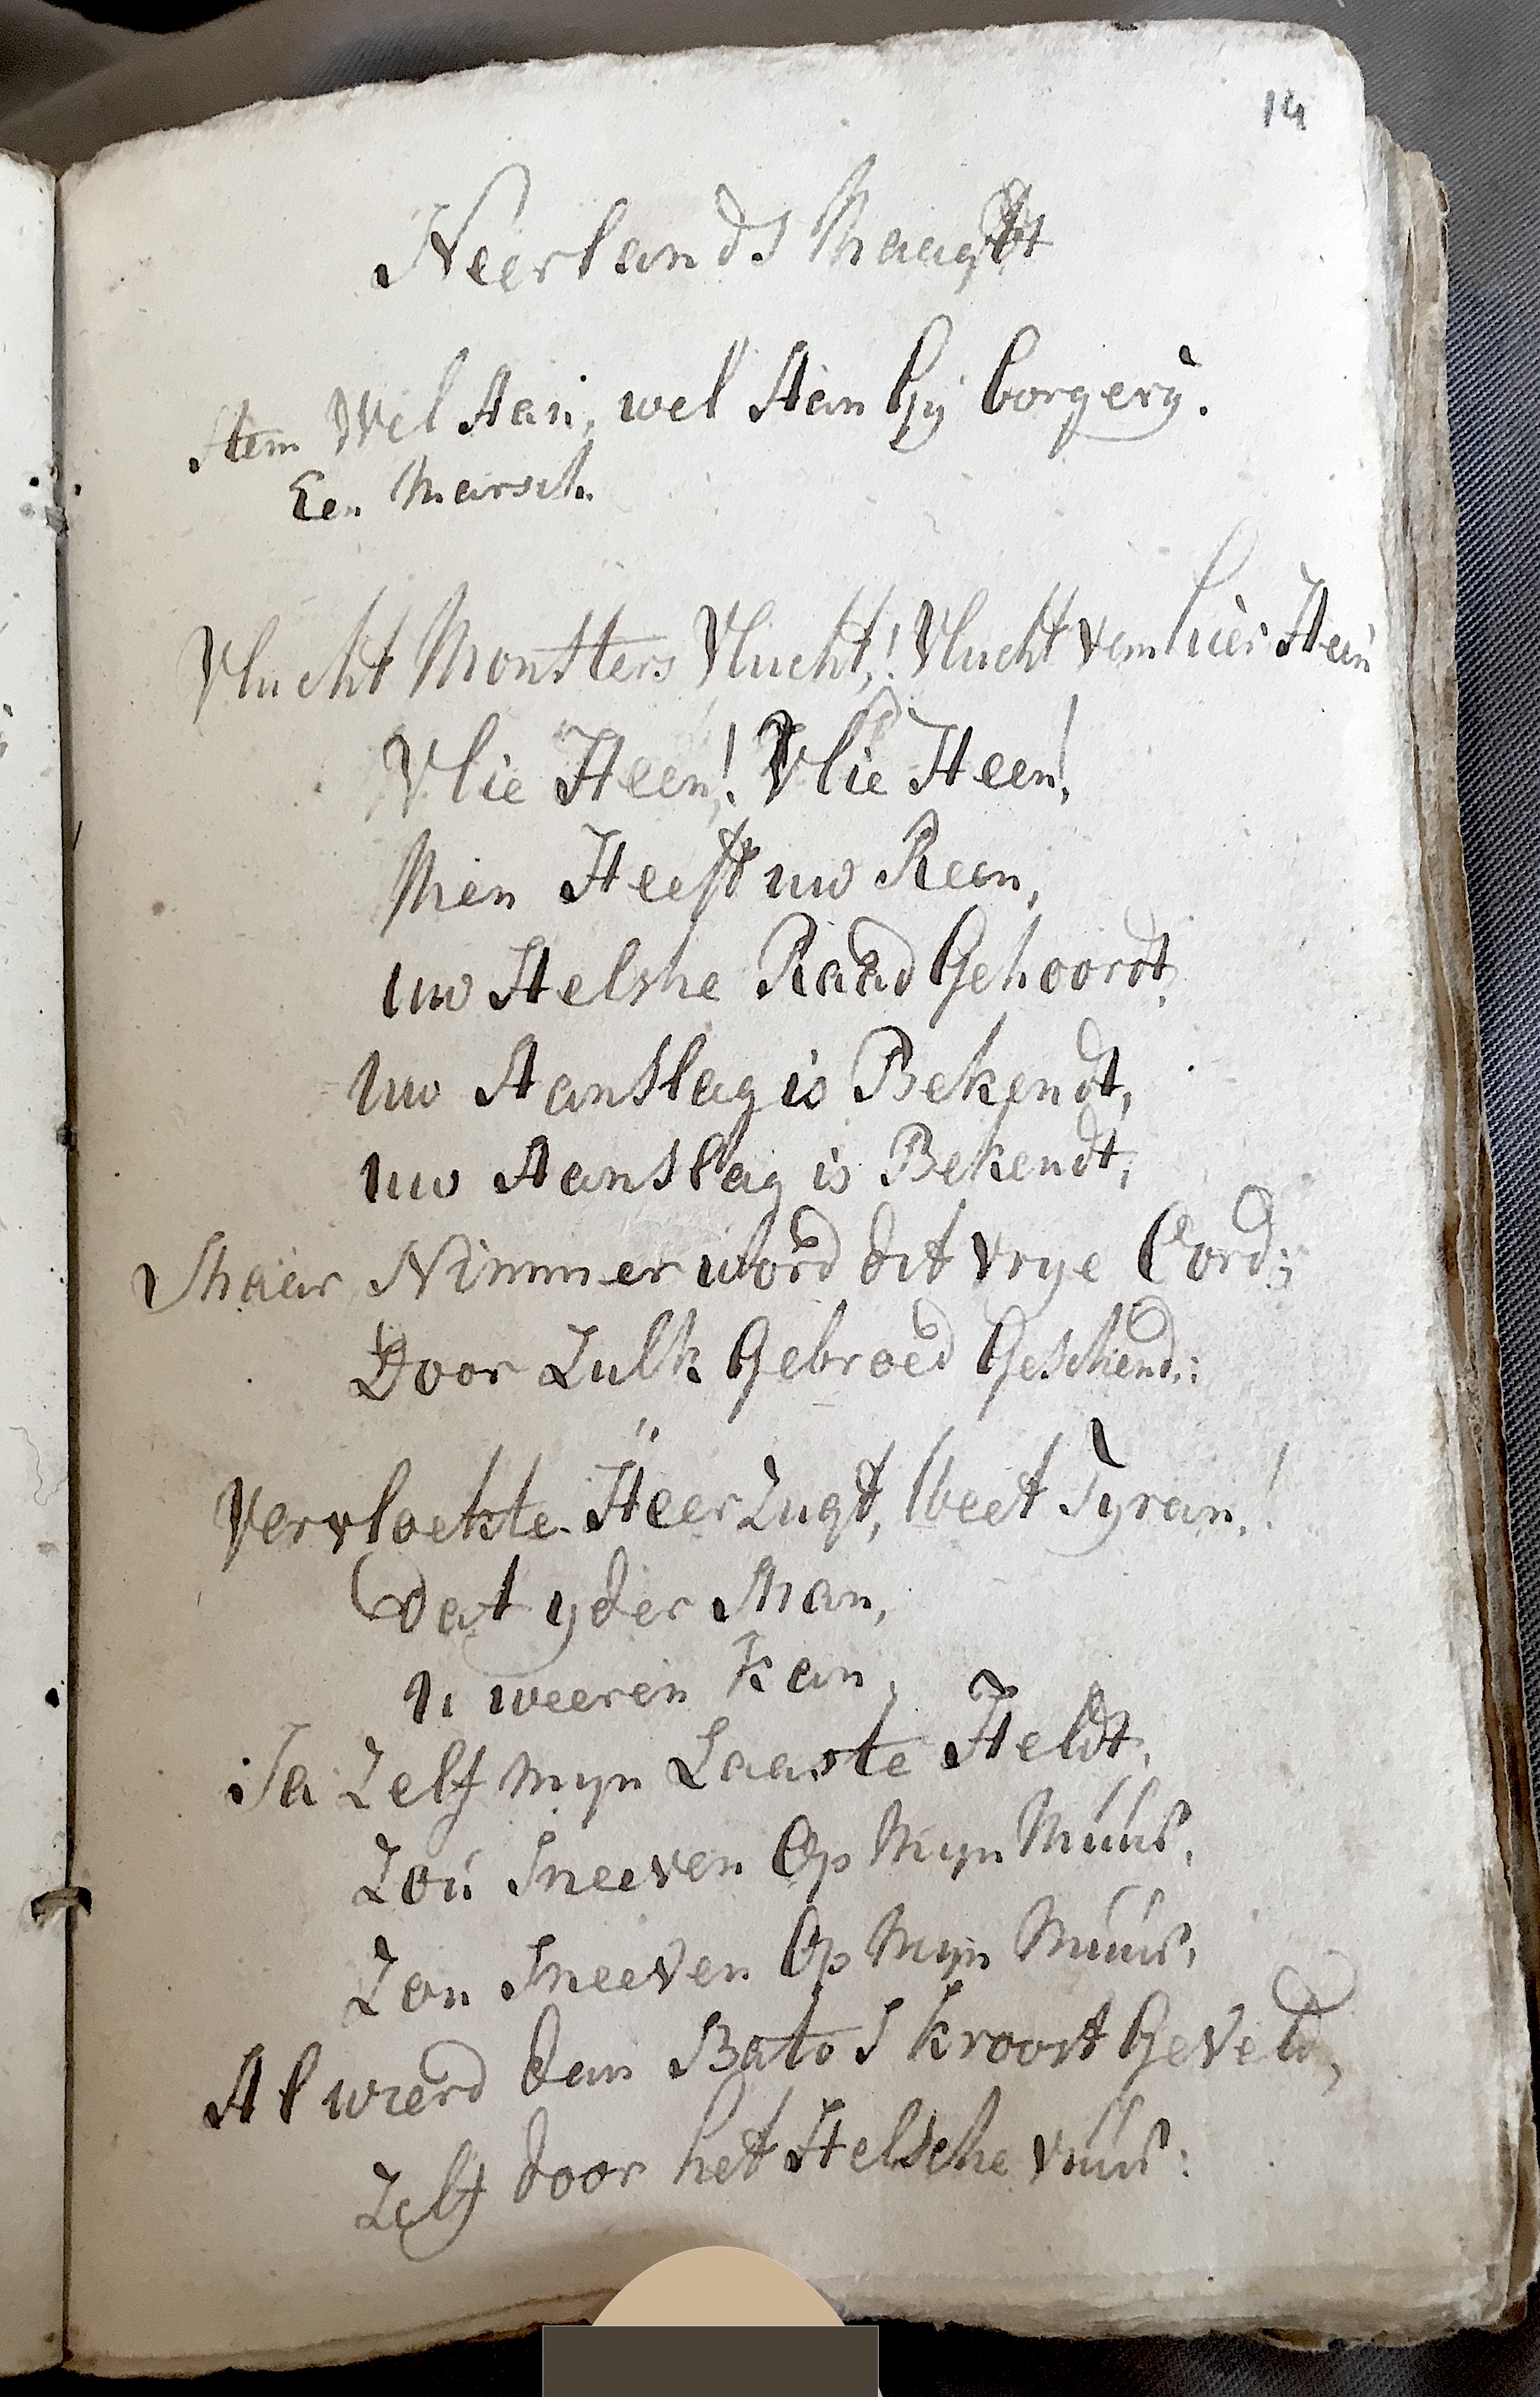 14
Neerlands Maagdt
Stem Wel Aan, wel Aan Gy borgery.
Een Marsch.
Vlucht Monsters Vlucht,! Vlucht van hier Heen
Vlie Heen,! Vlie Heen!,
Men Heeft uw Reen,
uw Helshe Raad Gehoordt,
Uw Aanslag is Bekendt,
Uw Aanslag is Bekendt,
Maar Nimmer word dit vrye Oord;
Door Zulk Gebroed Geschend::
Vervloekte Heerzugt, weet Tyran,!
Dat yder Man,
U weeren Kan,
Ja Zelf myn Laaste Heldt,
Zoú Sneeven Op Myn Múúr,
Zou Sneeven Op Myn Múúr,
Al wierd dan Bato's kroost Geveld,
Zelf door het Helsche vúúr: